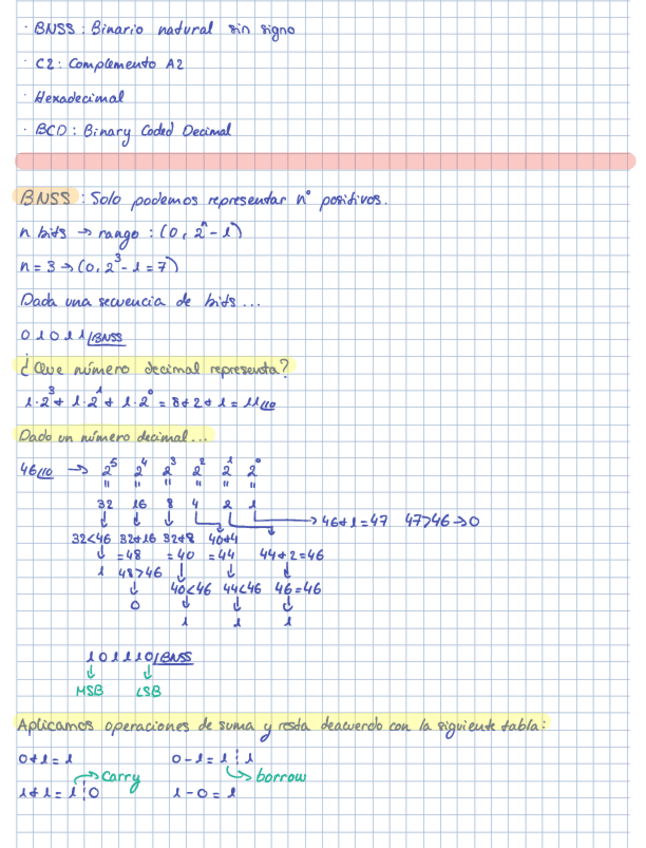 · BNSS : Binario natural sin signo
· C2 : Complemento A2
· Hexadecimal
· BCD : Binary Coded Decimal
BNSS : Solo podemos representar nº positivos.
n bits → rango : (0, 2^n - 1)
n = 3 → (0, 2^3 - 1 = 7)
Dada una secuencia de bits ...
0 1 0 1 1 /BNSS
¿Que número decimal representa?
1·2^3 + 1·2^1 + 1·2^0 = 8+2+1 = 11/10
Dado un número decimal ...
46/10 → 2^5 2^4 2^3 2^2 2^1 2^0
" " " " " "
32 16 8 4 2 1
↓ ↓ ↓ → 46+1=47 47>46→0
32<46 32+16 32+8 40+4
↓ =48 =40 =44 44+2=46
1 48>46 ↓ ↓ ↓
↓ 40<46 44<46 46=46
0 ↓ ↓ ↓
1 1 1
101110/BNSS
↓ ↓
MSB LSB
Aplicamos operaciones de suma y resta deacuerdo con la siguiente tabla:
0+1=1 0-1=1¦1
→ carry → borrow
1+1=1¦0 1-0=1